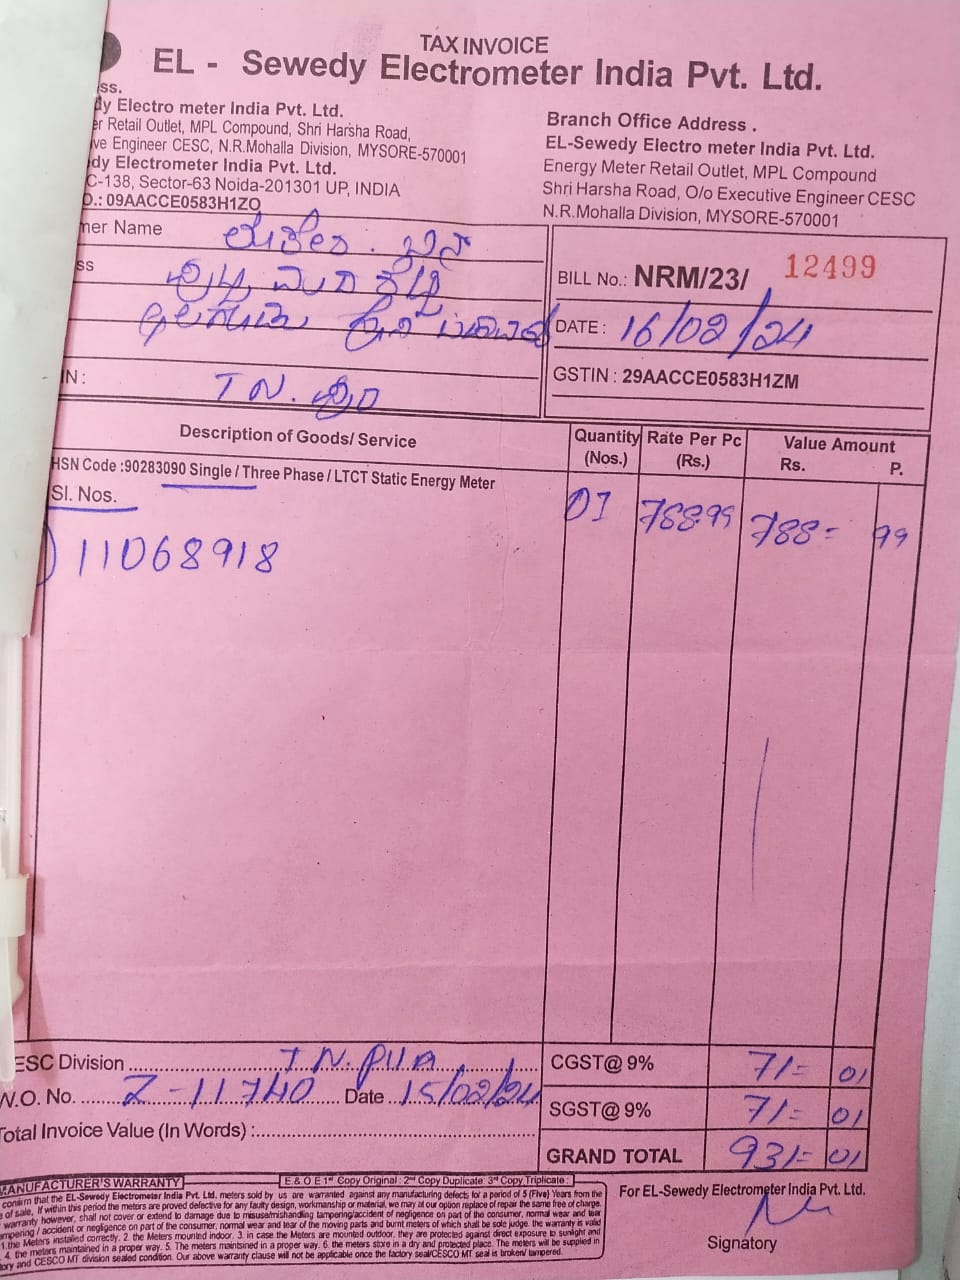 TAX INVOICE
EL - Sewedy Electrometer India Pvt. Ltd.
ss.
dy Electro meter India Pvt. Ltd.
er Retail Outlet, MPL Compound, Shri Harsha Road,
ve Engineer CESC, N.R.Mohalla Division, MYSORE-570001
dy Electrometer India Pvt. Ltd.
C-138, Sector-63 Noida-201301 UP, INDIA
O.: 09AACCE0583H1ZO
Branch Office Address .
EL-Sewedy Electro meter India Pvt. Ltd.
Energy Meter Retail Outlet, MPL Compound
Shri Harsha Road, O/o Executive Engineer CESC
N.R.Mohalla Division, MYSORE-570001
mer Name
ss
IN :
T N.
BILL No.: NRM/23/ 12499
DATE : 16/02/24
GSTIN : 29AACCE0583H1ZM
Description of Goods/ Service
Quantity (Nos.)
Rate Per Pc (Rs.)
Value Amount
Rs. P.
HSN Code :90283090 Single / Three Phase / LTCT Static Energy Meter
Sl. Nos.
) 11068918
01 788.99 788= 99
ESC Division T N. PURA
W.O. No. Z-11740 Date 15/02/24
Total Invoice Value (In Words) :
CGST@ 9% 71= 01
SGST@ 9% 71= 01
GRAND TOTAL 931= 01
MANUFACTURER'S WARRANTY
E & O E 1st Copy Original : 2nd Copy Duplicate: 3rd Copy Triplicate :
confirm that the EL-Sewedy Electrometer India Pvt. Ltd. meters sold by us are warranted against any manufacturing defects for a period of 5 (Five) Years from the
of sale, If within this period the meters are proved defective for any faulty design, workmanship or material, we may at our option replace of repair the same free of charge.
warranty however, shall not cover or extend to damage due to misuse/mishandling tampering/accident of negligence on part of the consumer, normal wear and tear
mpering / accident or negligence on part of the consumer, normal wear and tear of the moving parts and burnt meters of which shall be sole judge. the warranty is valid
1.the Meters installed correctly. 2. the Meters mounted indoor. 3. in case the Meters are mounted outdoor, they are protected against direct exposure to sunlight and
4. the meters maintained in a proper way. 5. The meters maintsined in a proper way. 6. the meters store in a dry and protected place. The meters will be supplied in
ory and CESCO MT division sealed condition. Our above warranty clause will not be applicable once the factory seal/CESCO MT seal is broken/ tampered.
For EL-Sewedy Electrometer India Pvt. Ltd.
Signatory